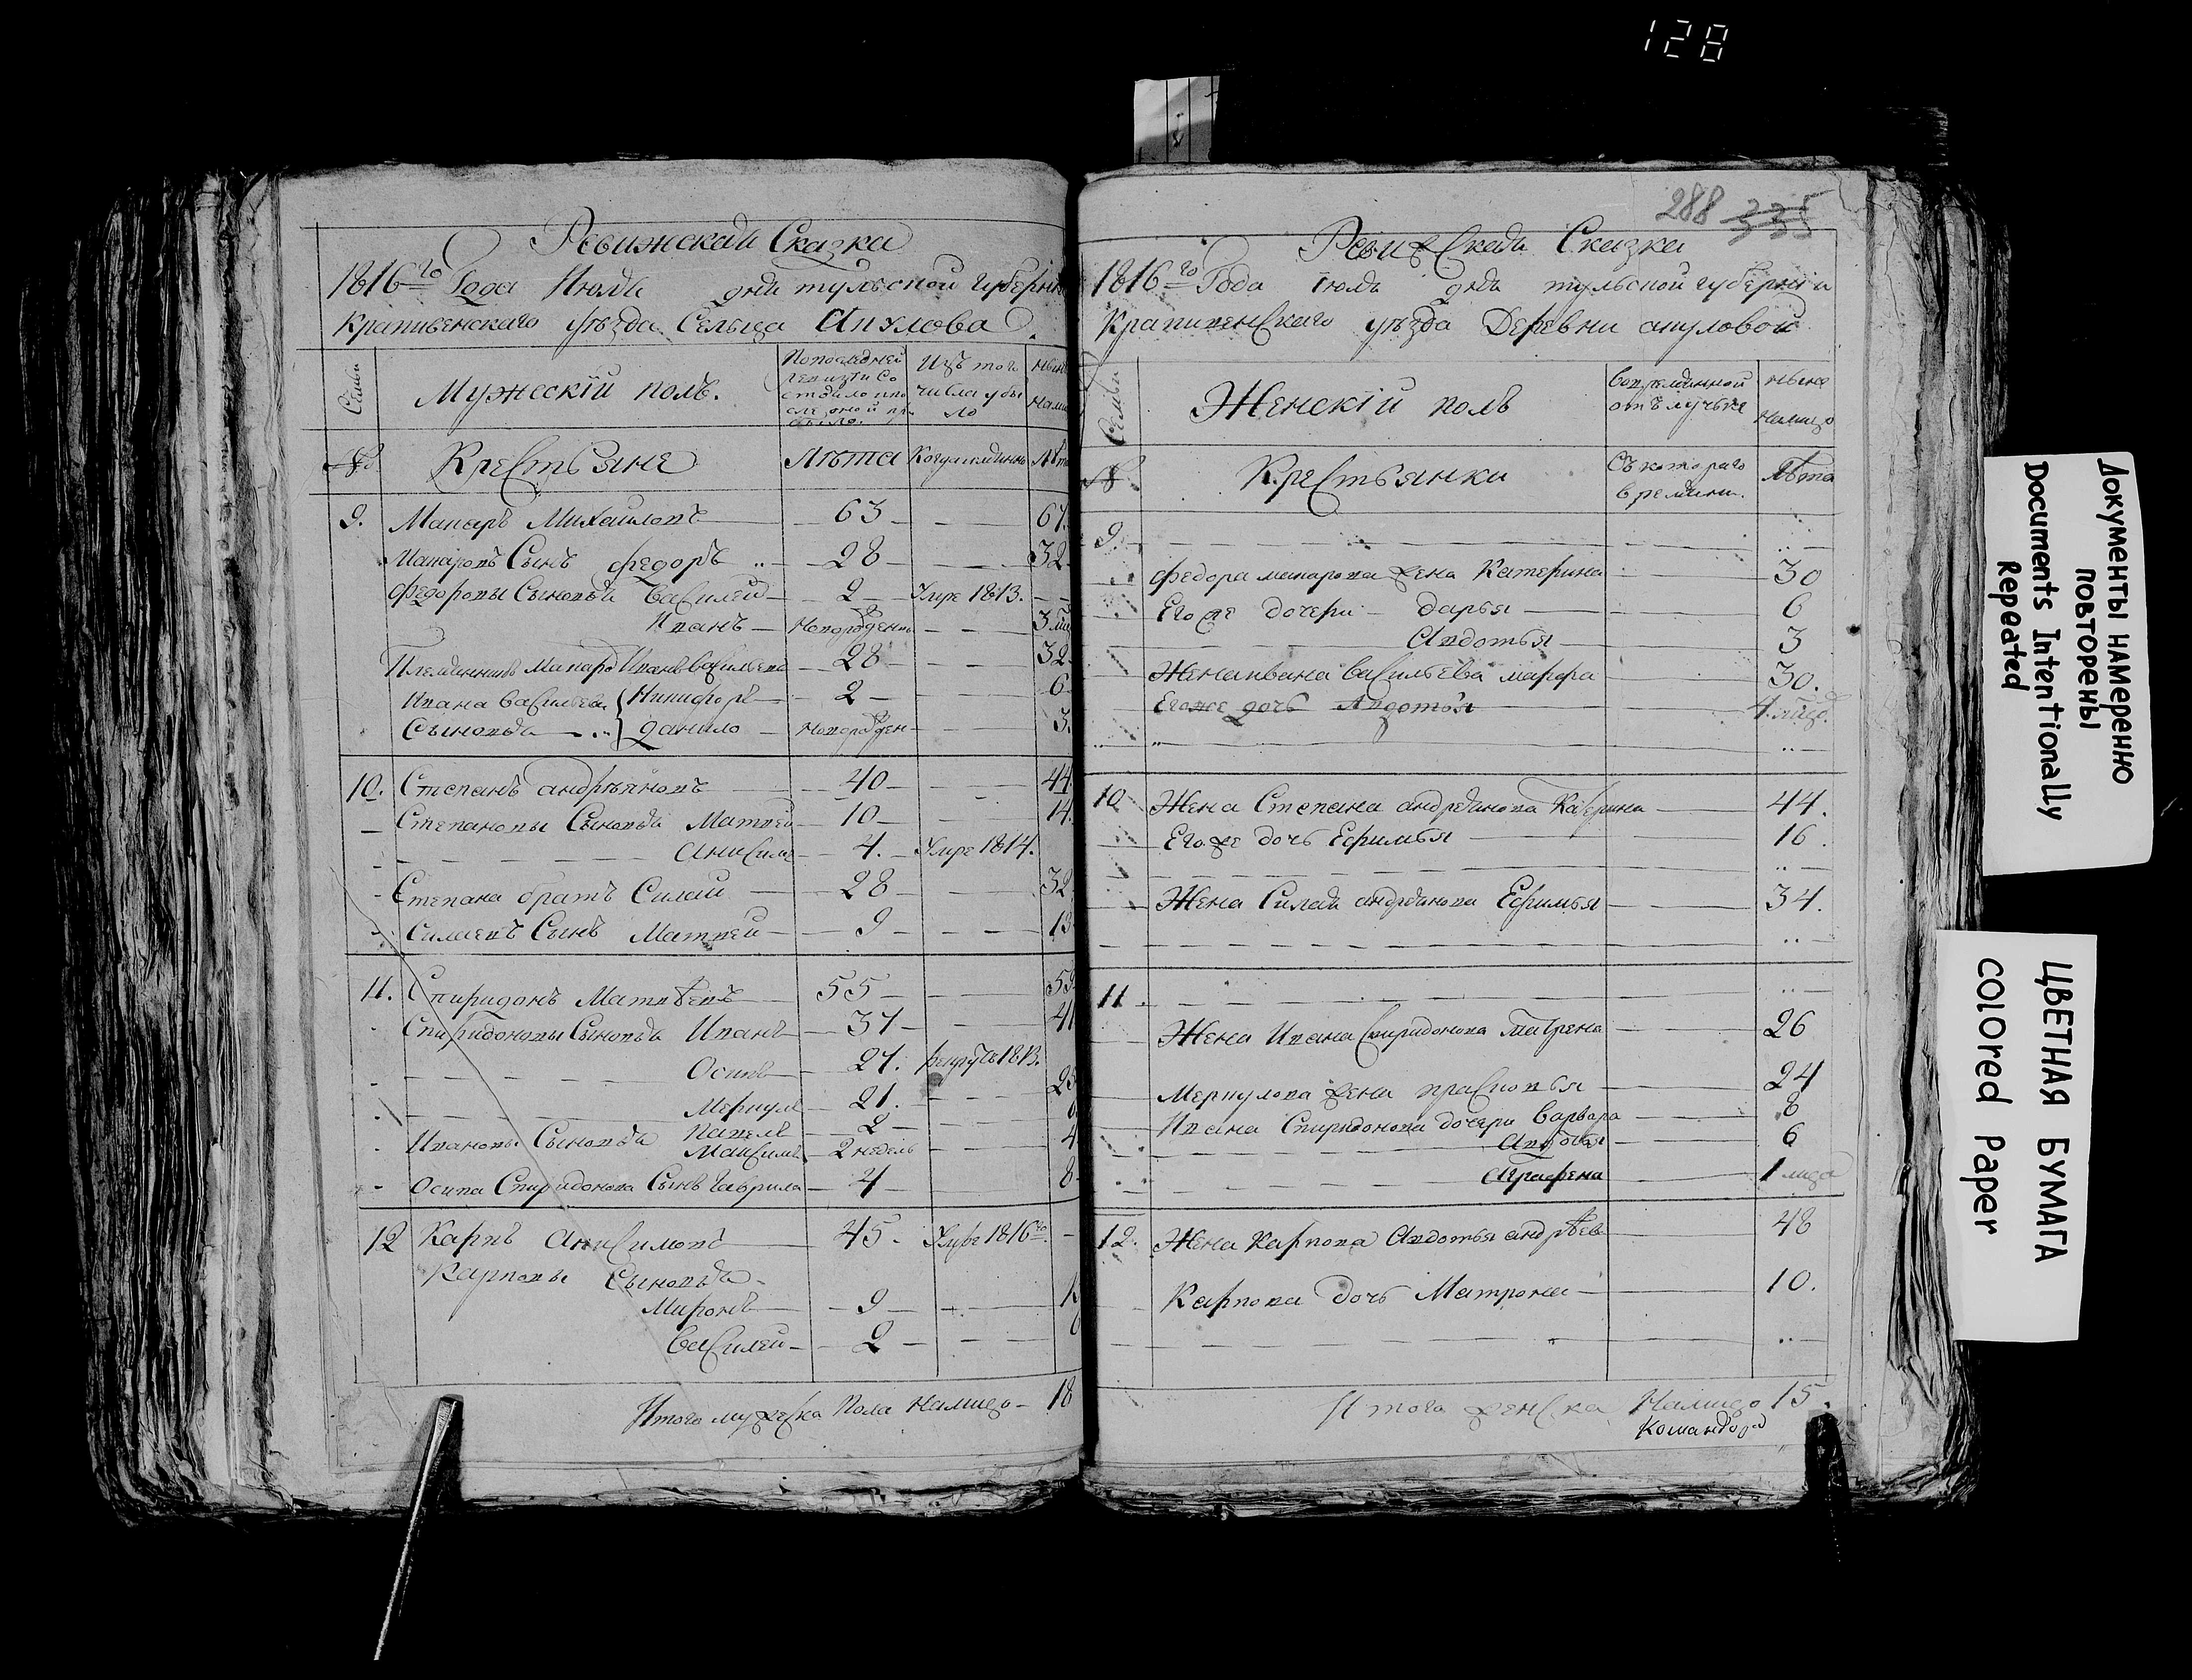 128
Ревижская Сказка
1816го Года Июля дня тульской губерни
Крапивенскаго уѣзда Сельца Акулова
Семьи
Мужескiй полъ.
Попоследней ревизти состояло ипосля оной прибыло.
Изъ того числа убыло
Ныне Налицо
№
Крестьяне
Лѣта
Когда имянно
Лѣта
9. Макаръ Михайловъ 63 67
Макаровъ Сынъ федоръ 28 32
федоровы Сыновья Василей 2 Умре 1813.
Иванъ Новорожденъ 3
Племянникъ Макара Иванъ Васильевъ 28 32
Ивана Васильева Никифоръ 2 6
Сыновья данило Новорожден 3.
10. Степанъ андрѣяновъ 40 44
Степановы Сыновья Матвей 10 14.
Анисимъ 4. Умре 1814.
Степана братъ Силай 28 32
Силаевъ Сынъ Матвей 9 13
11. Спиридонъ Матвѣевъ 55 59
Спиридоновы Сыновья Иванъ 37 41
Осипъ 27.
Меркулъ 21. 25
Ивановы Сыновья Павелъ 2 6
Максимъ 2 недель 4
Осипа Спиридонова Сынъ Гаврила 4 8
12 Карпъ Анисимовъ 45 Умре 1816го
Карповы Сыновья
Миронъ 9
Василей 2
Итого мужеска Пола Налицо 18
288 335
Ревижская Сказка
1816го Года Iюля дня тульской губернiи
Крапивенскаго уѣзда Деревни акуловой
Семьи
Женскiй полъ
Вовремянной отълучьке
ныне налицо
№
Крестьянки
Съ котораго времени.
Лѣта
9.
федора макарова жена Катерина 30
Его же дочери дарья 6
Авдотья 3
Жена ивана васильева марфа 30.
Егоже дочь Авдотья
10 Жена Степана андреянова 44.
Его же дочь Ефимья 16.
Жена Силая андреянова Ефимья 34.
11.
Жена Ивана Спиридонова Матрена 26
Меркулова жена прасковья 24
Ивана Спиридонова дочери Варвара 8
Авдотья 6
Аграфена 1
12. Жена Карпова Авдотья андрѣев 48
Карпова дочь Матрона 10.
Итого женска Налицо 15.
Документы намеренно повторены
Documents Intentionally Repeated
ЦВЕТНАЯ БУМАГА
Colored Paper